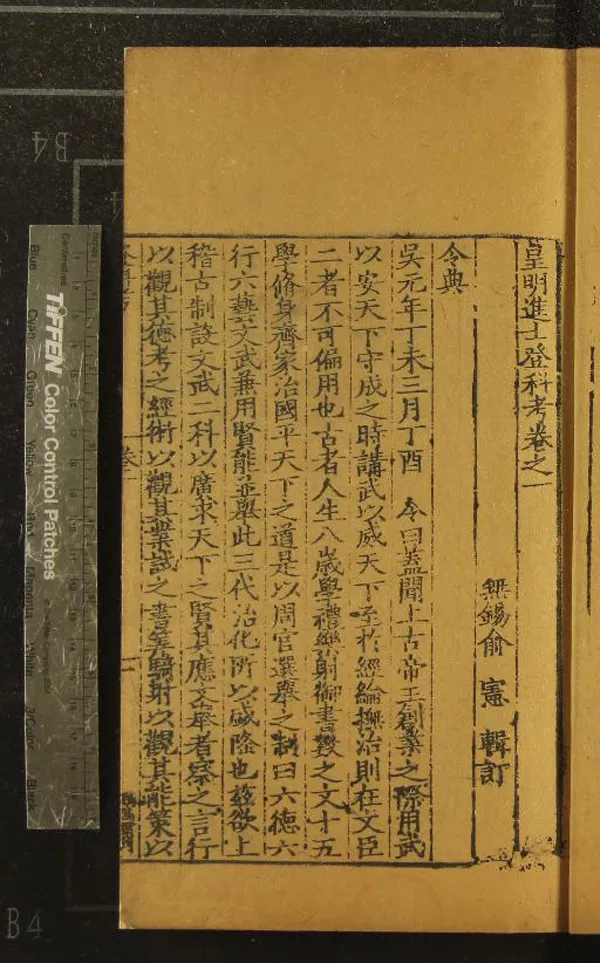 皇明進士登科考卷之一
無錫俞 憲 輯訂
令典
吳元年丁未三月丁酉 令曰蓋聞上古帝王創業之際用武
以安天下守成之時講武以威天下至於經綸撫治則在文臣
二者不可偏用也古者人生八歲學禮樂射御書數之文十五
學脩身齊家治國平天下之道是以周官選舉之制曰六德六
行六藝文武兼用賢能並舉此三代治化所以盛隆也茲欲上
稽古制設文武二科以廣求天下之賢其應文舉者察之言行
以觀其德考之經術以觀其業試之書筭騎射以觀其能策以
卷一
Inches
Centimetres
TIFFEN Color Control Patches
Blue
Cyan
Green
Yellow
Red
Magenta
White
3/Color
Black
B4
B4